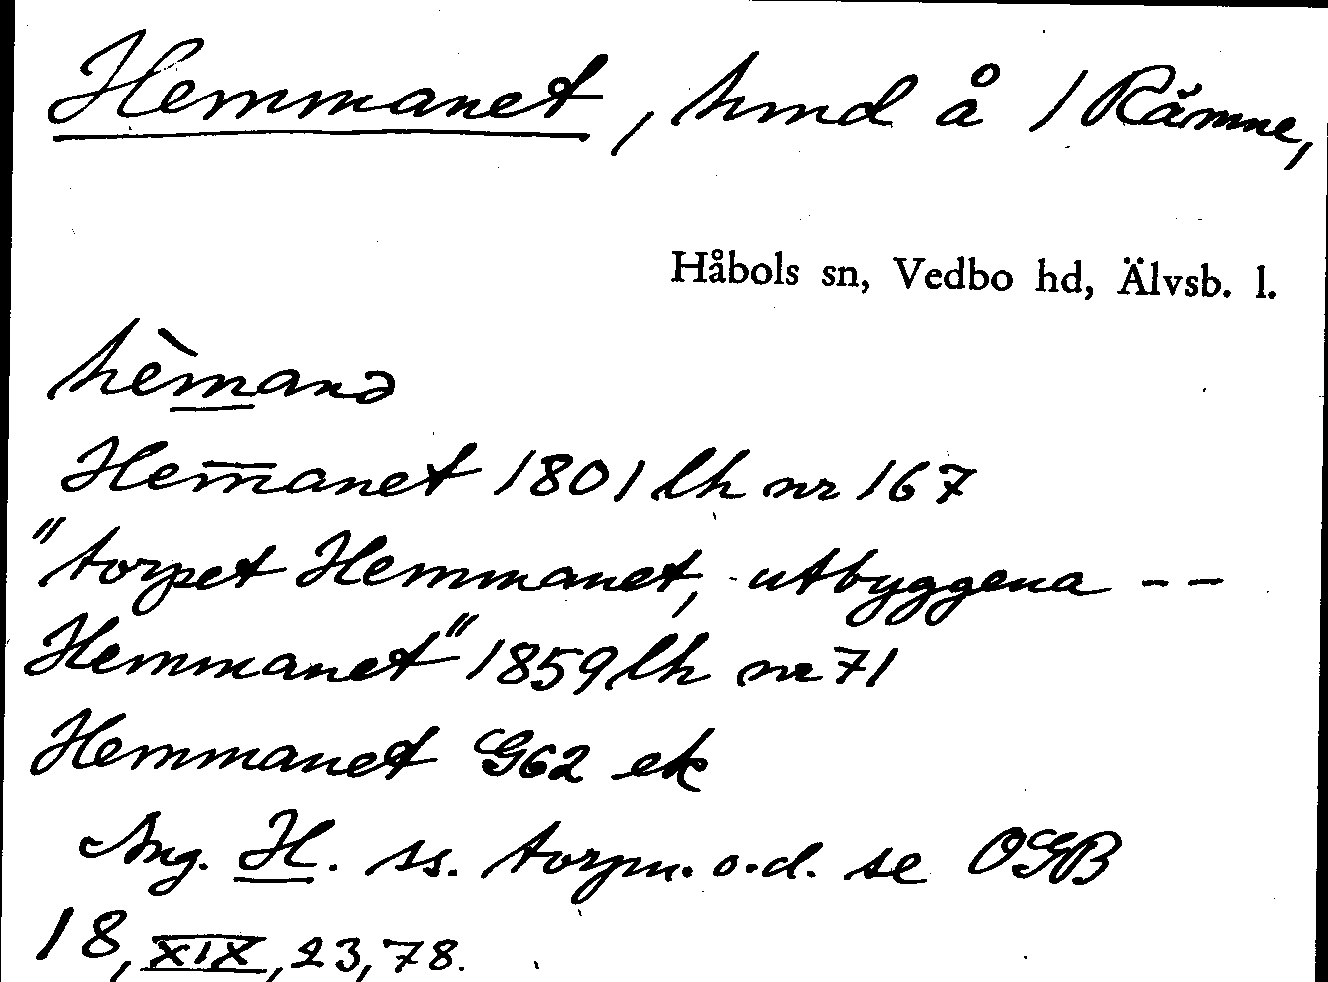 Hemmanet, hmd å 1 Rämne,
Håbols sn, Vedbo hd, Älvsb. l.
hèmanə
Hem̄anet 1801 lh nr 167
"torpet Hemmanet, utbyggena --
Hemmanet" 1859 lh nr 71
Hemmanet G62 ek
Ang. H. ss. torpn. o.d. se OGB
18, XIX, 23, 78.